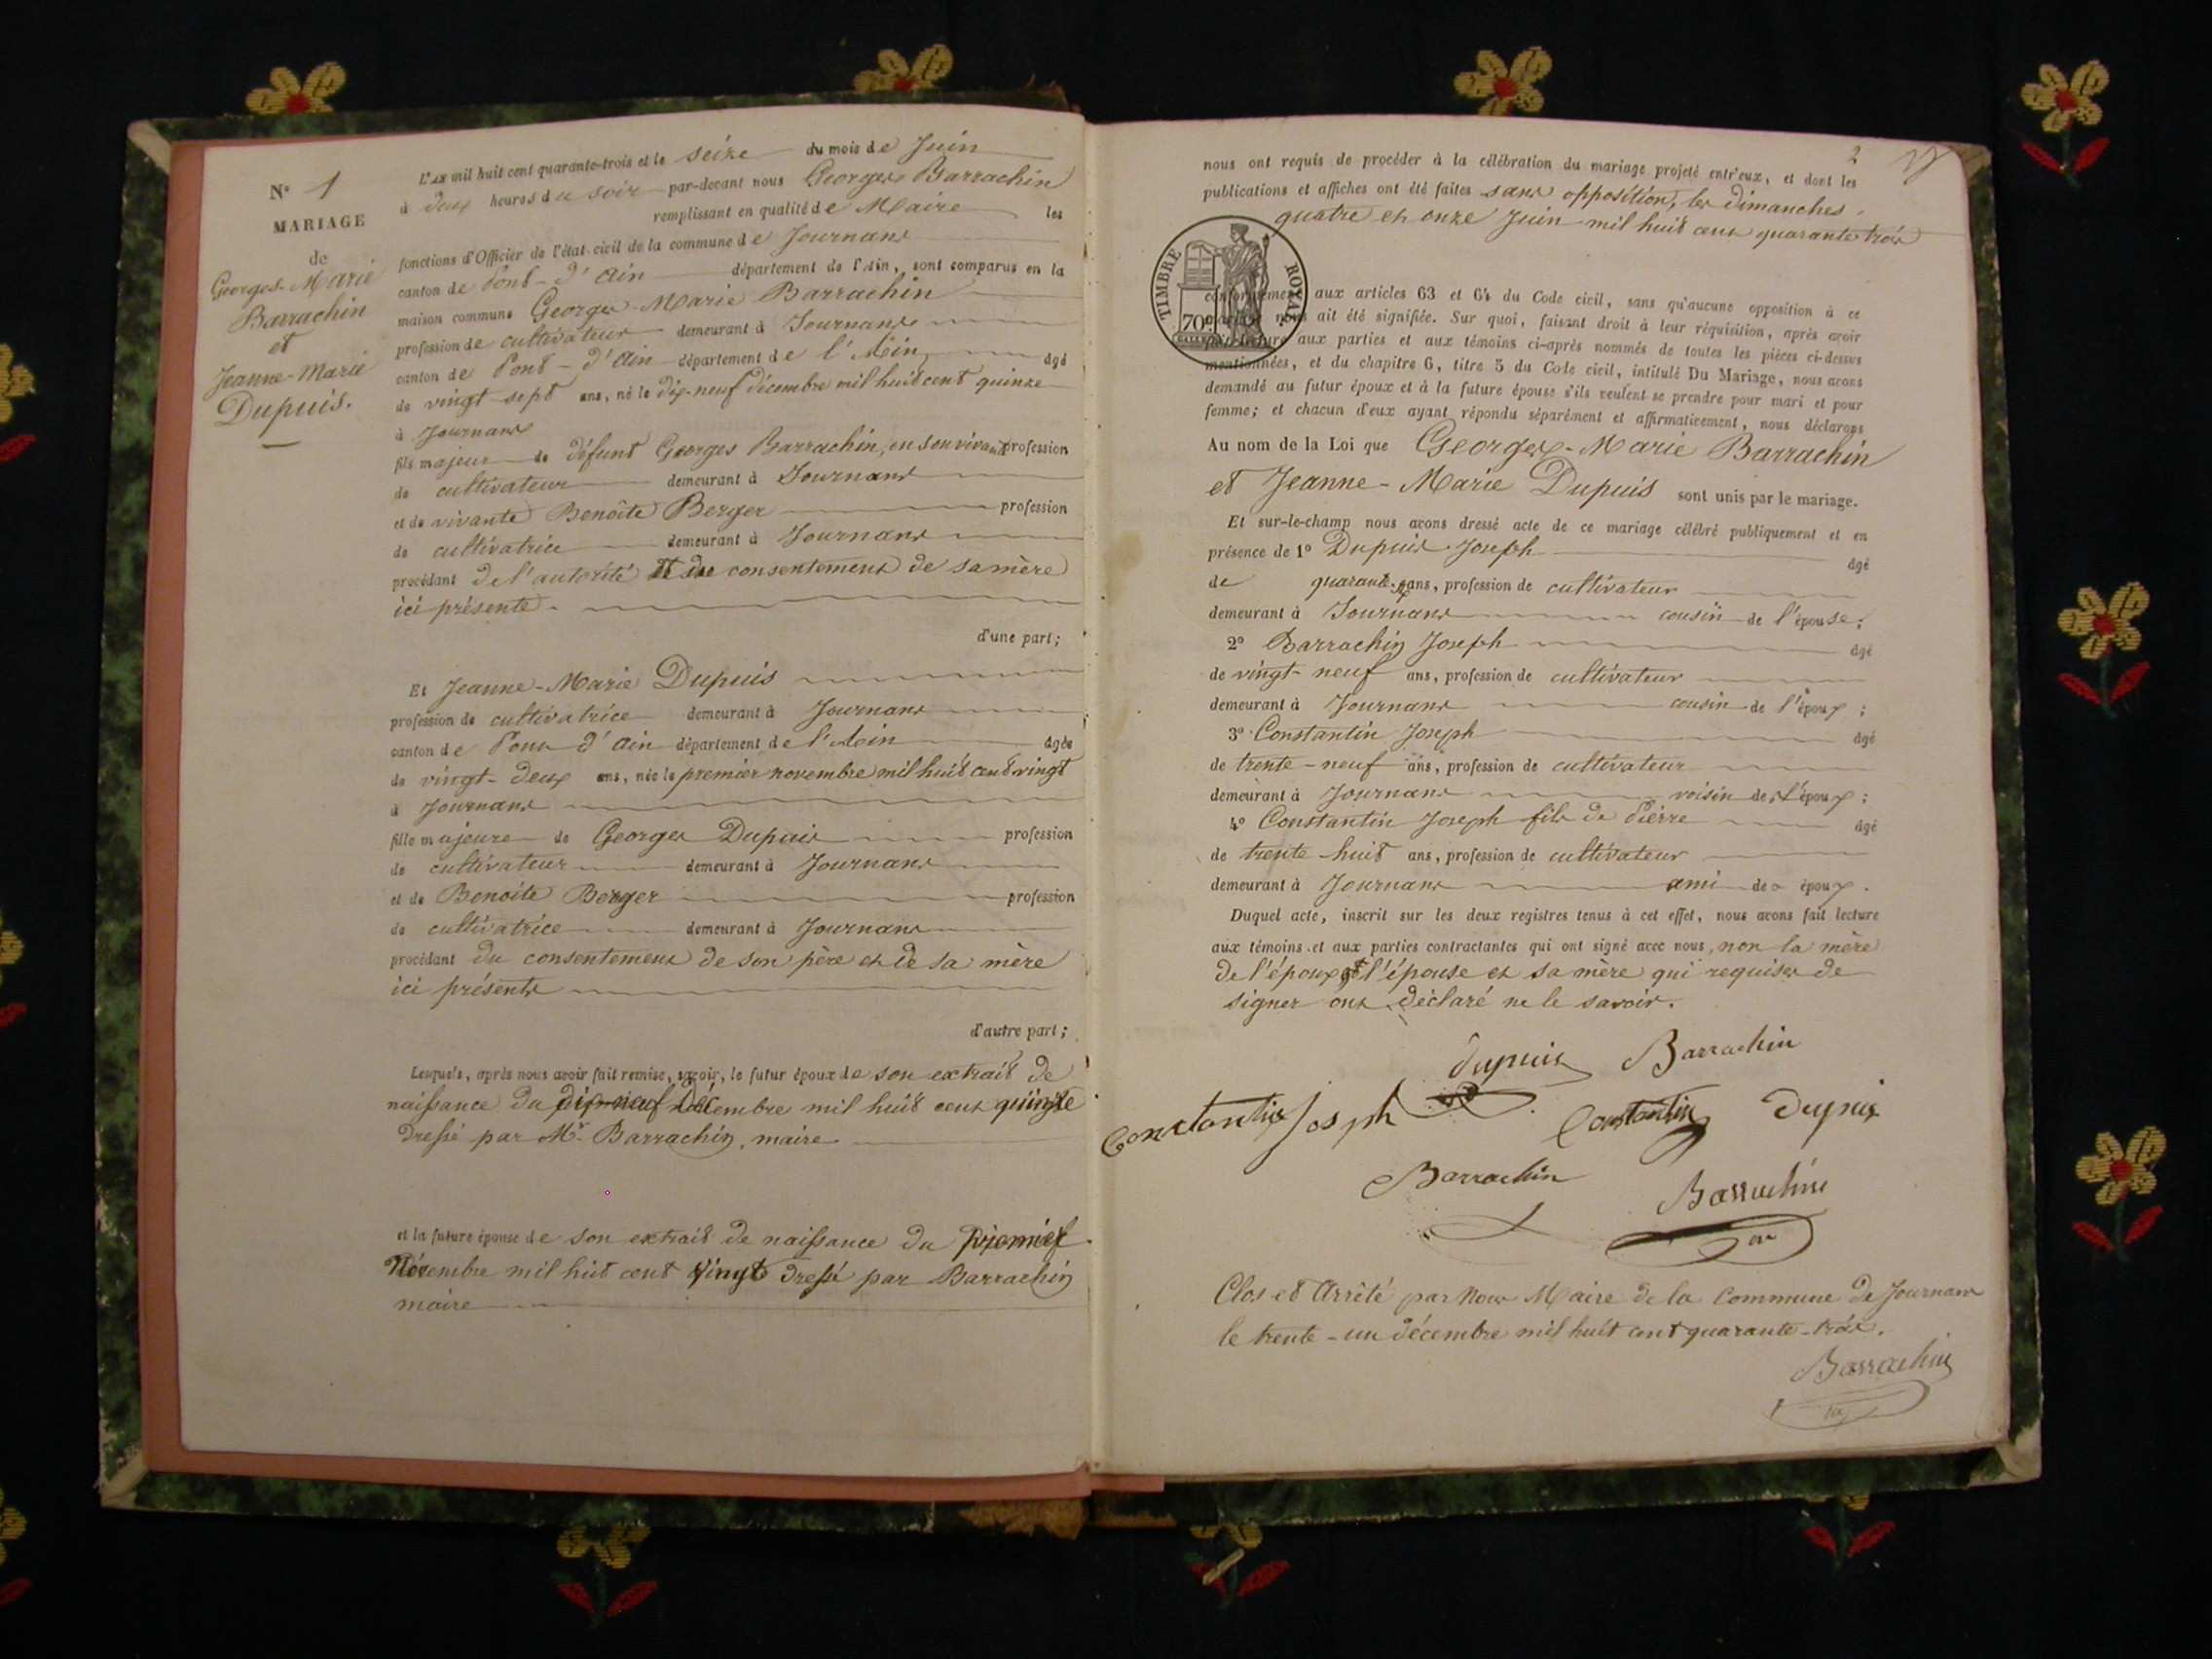 N° 1
MARIAGE
de
Georges-Marie
Barrachin
et
Jeanne-Marie
Dupuis.
L'an mil huit cent quarante-trois et le seize du mois de Juin
à deux heures du soir par-devant nous Georges Barrachin
remplissant en qualité de Maire les
fonctions d'Officier de l'état civil de la commune de Journans
canton de Pont-d'Ain département de l'Ain, sont comparus en la
maison commune Georges-Marie Barrachin
profession de cultivateur demeurant à Journans
canton de Pont-d'Ain département de l'Ain âgé
de vingt-sept ans, né le dix-neuf décembre mil huit cent quinze
à Journans
fils majeur de défunt Georges Barrachin, en son vivant profession
de cultivateur demeurant à Journans
et de vivante Benoîte Berger profession
de cultivatrice demeurant à Journans
procédant de l'autorité et du consentement de sa mère
ici présente.
d'une part;
Et Jeanne-Marie Dupuis
profession de cultivatrice demeurant à Journans
canton de Pont d'Ain département de l'Ain âgée
de vingt-deux ans, née le premier novembre mil huit cent vingt
à Journans
fille majeure de Georges Dupuis profession
de cultivateur demeurant à Journans
et de Benoîte Berger profession
de cultivatrice demeurant à Journans
procédant du consentement de son père et de sa mère
ici présents
d'autre part;
Lesquels, après nous avoir fait remise, savoir, le futur époux de son extrait de
naissance du dix-neuf Décembre mil huit cent quinze
dressé par Mr Barrachin, maire
et la future épouse de son extrait de naissance du premier
Novembre mil huit cent vingt dressé par Barrachin
maire
2
nous ont requis de procéder à la célébration du mariage projeté entr'eux, et dont les
publications et affiches ont été faites sans opposition, les dimanches
quatre et onze Juin mil huit cent quarante trois
TIMBRE ROYAL
70c
conformément aux articles 63 et 64 du Code civil, sans qu'aucune opposition à ce
mariage nous ait été signifiée. Sur quoi, faisant droit à leur réquisition, après avoir
fait lecture aux parties et aux témoins ci-après nommés de toutes les pièces ci-dessus
mentionnées, et du chapitre 6, titre 5 du Code civil, intitulé Du Mariage, nous avons
demandé au futur époux et à la future épouse s'ils veulent se prendre pour mari et pour
femme; et chacun d'eux ayant répondu séparément et affirmativement, nous déclarons
Au nom de la Loi que Georges-Marie Barrachin
et Jeanne-Marie Dupuis sont unis par le mariage.
Et sur-le-champ nous avons dressé acte de ce mariage célébré publiquement et en
présence de 1° Dupuis Joseph âgé
de ans, profession de cultivateur
demeurant à Journans cousin de l'épouse;
2° Barrachin Joseph âgé
de vingt-neuf ans, profession de cultivateur
demeurant à Journans cousin de l'époux;
3° Constantin Joseph âgé
de trente-neuf ans, profession de cultivateur
demeurant à Journans voisin de l'époux;
4° Constantin Joseph fils de Pierre âgé
de trente-huit ans, profession de cultivateur
demeurant à Journans ami des époux.
Duquel acte, inscrit sur les deux registres tenus à cet effet, nous avons fait lecture
aux témoins et aux parties contractantes qui ont signé avec nous, non la mère
de l'époux et l'épouse et sa mère qui requises de
signer ont déclaré ne le savoir.
Dupuis Barrachin
Constantin Joseph Constantin Dupuis
Barrachin Barrachin
Clos et Arrêté par Nous Maire de la Commune de Journans
le trente-un décembre mil huit cent quarante-trois.
Barrachin